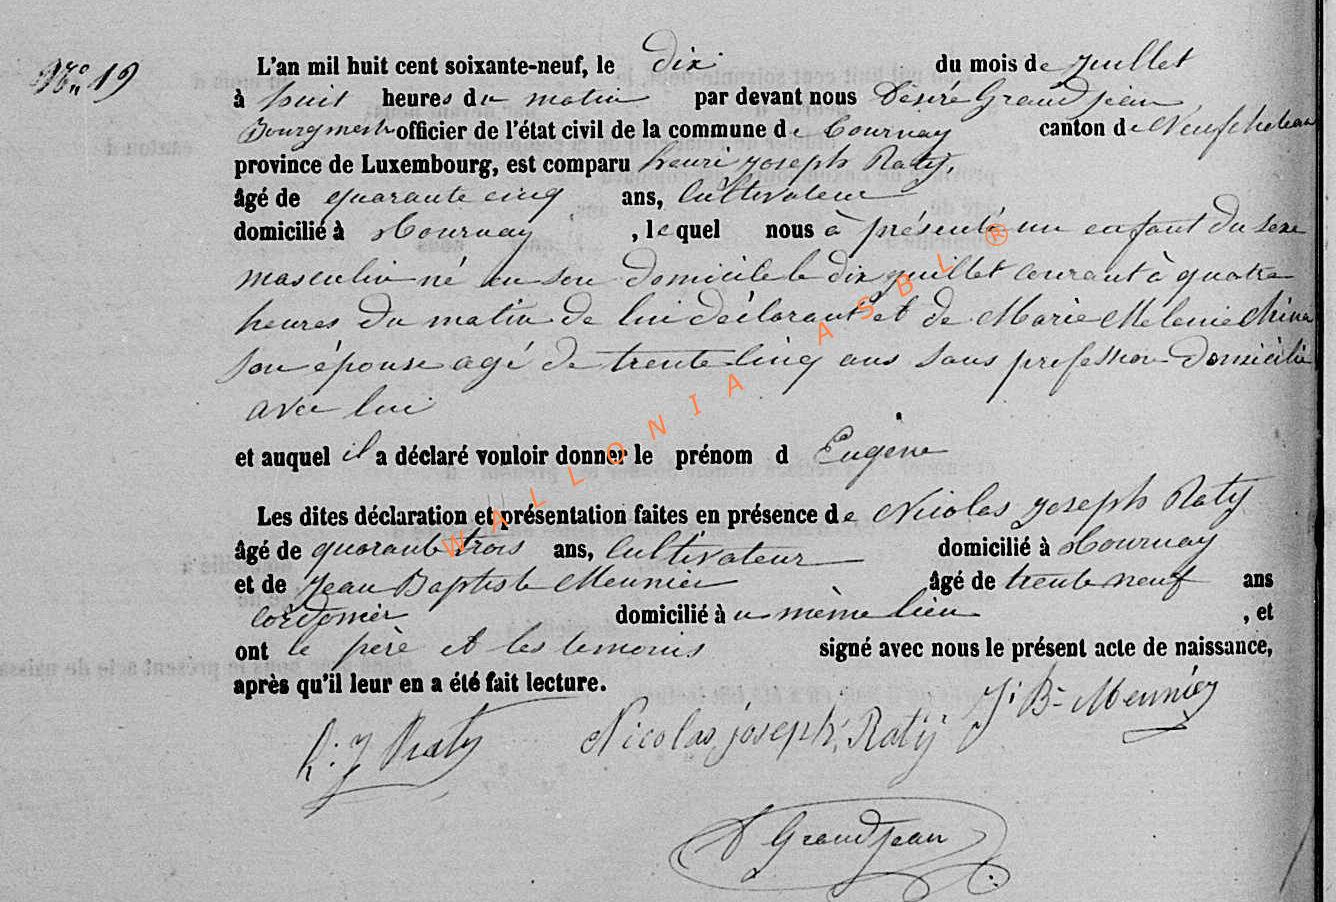 N° 19
L'an mil huit cent soixante-neuf, le dix du mois de juillet
à huit heures du matin par devant nous Désiré Grandjean,
Bourgmestre officier de l'état civil de la commune de Tournay canton de Neufchateau
province de Luxembourg, est comparu henri joseph Raty,
âgé de quarante cinq ans, Cultivateur
domicilié à Tournay, lequel nous à présenté un enfant du sexe
masculin né en son domicile le dix juillet courant à quatre
heures du matin de lui déclarant et de Marie Melanie
son épouse agé de trente cinq ans sans profession domicilié
avec lui
et auquel il a déclaré vouloir donner le prénom d Eugène
Les dites déclaration et présentation faites en présence de Nicolas joseph Raty
âgé de quarante trois ans, Cultivateur domicilié à Tournay
et de Jean Baptiste Meunier âgé de trente neuf ans
Cordonier domicilié à u même lieu, et
ont le père et les temoins signé avec nous le présent acte de naissance,
après qu'il leur en a été fait lecture.
h. J Raty Nicolas joseph Raty J. B- Meunier
D Grandjean
WALLONIA ASBL ®